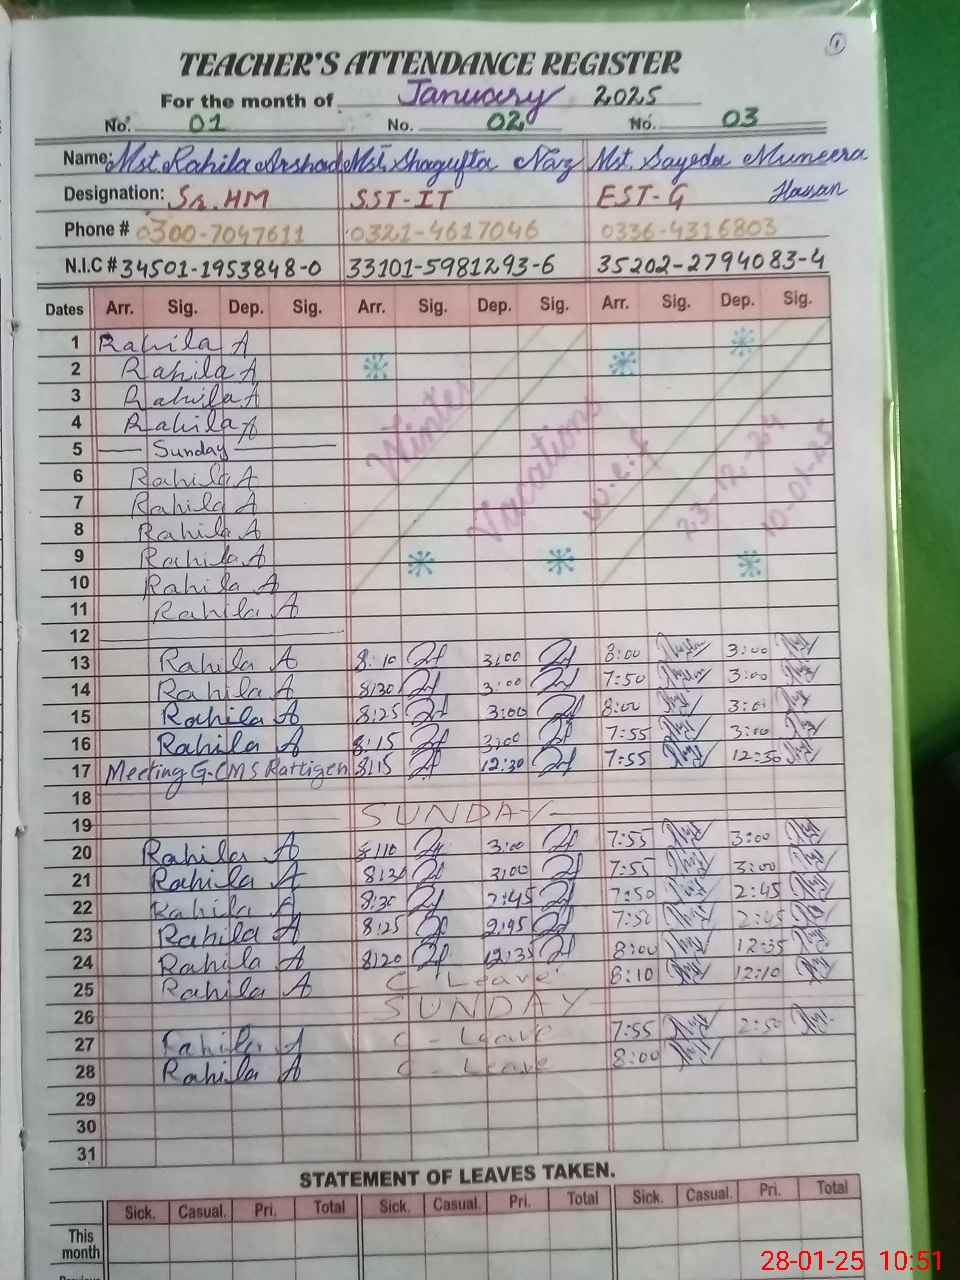 1
TEACHER'S ATTENDANCE REGISTER
For the month of January 2025
No. 01 No. 02 No. 03
Name: Mst. Rahila Arshad Mst. Shagufta Naz Mst. Sayeda Muneera Hassan
Designation: Sr. HM SST-IT EST-G
Phone # 0300-7047611 0321-4617046 0336-4316803
N.I.C # 34501-1953848-0 33101-5981293-6 35202-2794083-4
Dates Arr. Sig. Dep. Sig. Arr. Sig. Dep. Sig. Arr. Sig. Dep. Sig.
1 Rahila A
2 Rahila A
3 Rahila A
4 Rahila A
5 Sunday
6 Rahila A
7 Rahila A
8 Rahila A
9 Rahila A
10 Rahila A
11 Rahila A
Winter Vacations w.e.f 23-12-24 10-01-25
12
13 Rahila A 8:10 3:00 8:00 3:00
14 Rahila A 8:30 3:00 7:50 3:00
15 Rahila A 8:25 3:00 8:00 3:00
16 Rahila A 8:15 3:00 7:55 3:00
17 Meeting G-CMS 8:15 12:30 7:55 12:30
18
19 SUNDAY
20 Rahila A 8:10 3:00 7:55 3:00
21 Rahila A 8:30 3:00 7:55 3:00
22 Rahila A 8:30 2:45 7:50 2:45
23 Rahila A 8:25 2:45 7:50 2:45
24 Rahila A 8:20 12:35 8:00 12:35
25 Rahila A C Leave 8:10 12:10
26 SUNDAY
27 Rahila A C - Leave 7:55 2:50
28 Rahila A C - Leave 8:00
29
30
31
STATEMENT OF LEAVES TAKEN.
Sick. Casual. Pri. Total Sick. Casual. Pri. Total Sick. Casual. Pri. Total
This month
28-01-25 10:51